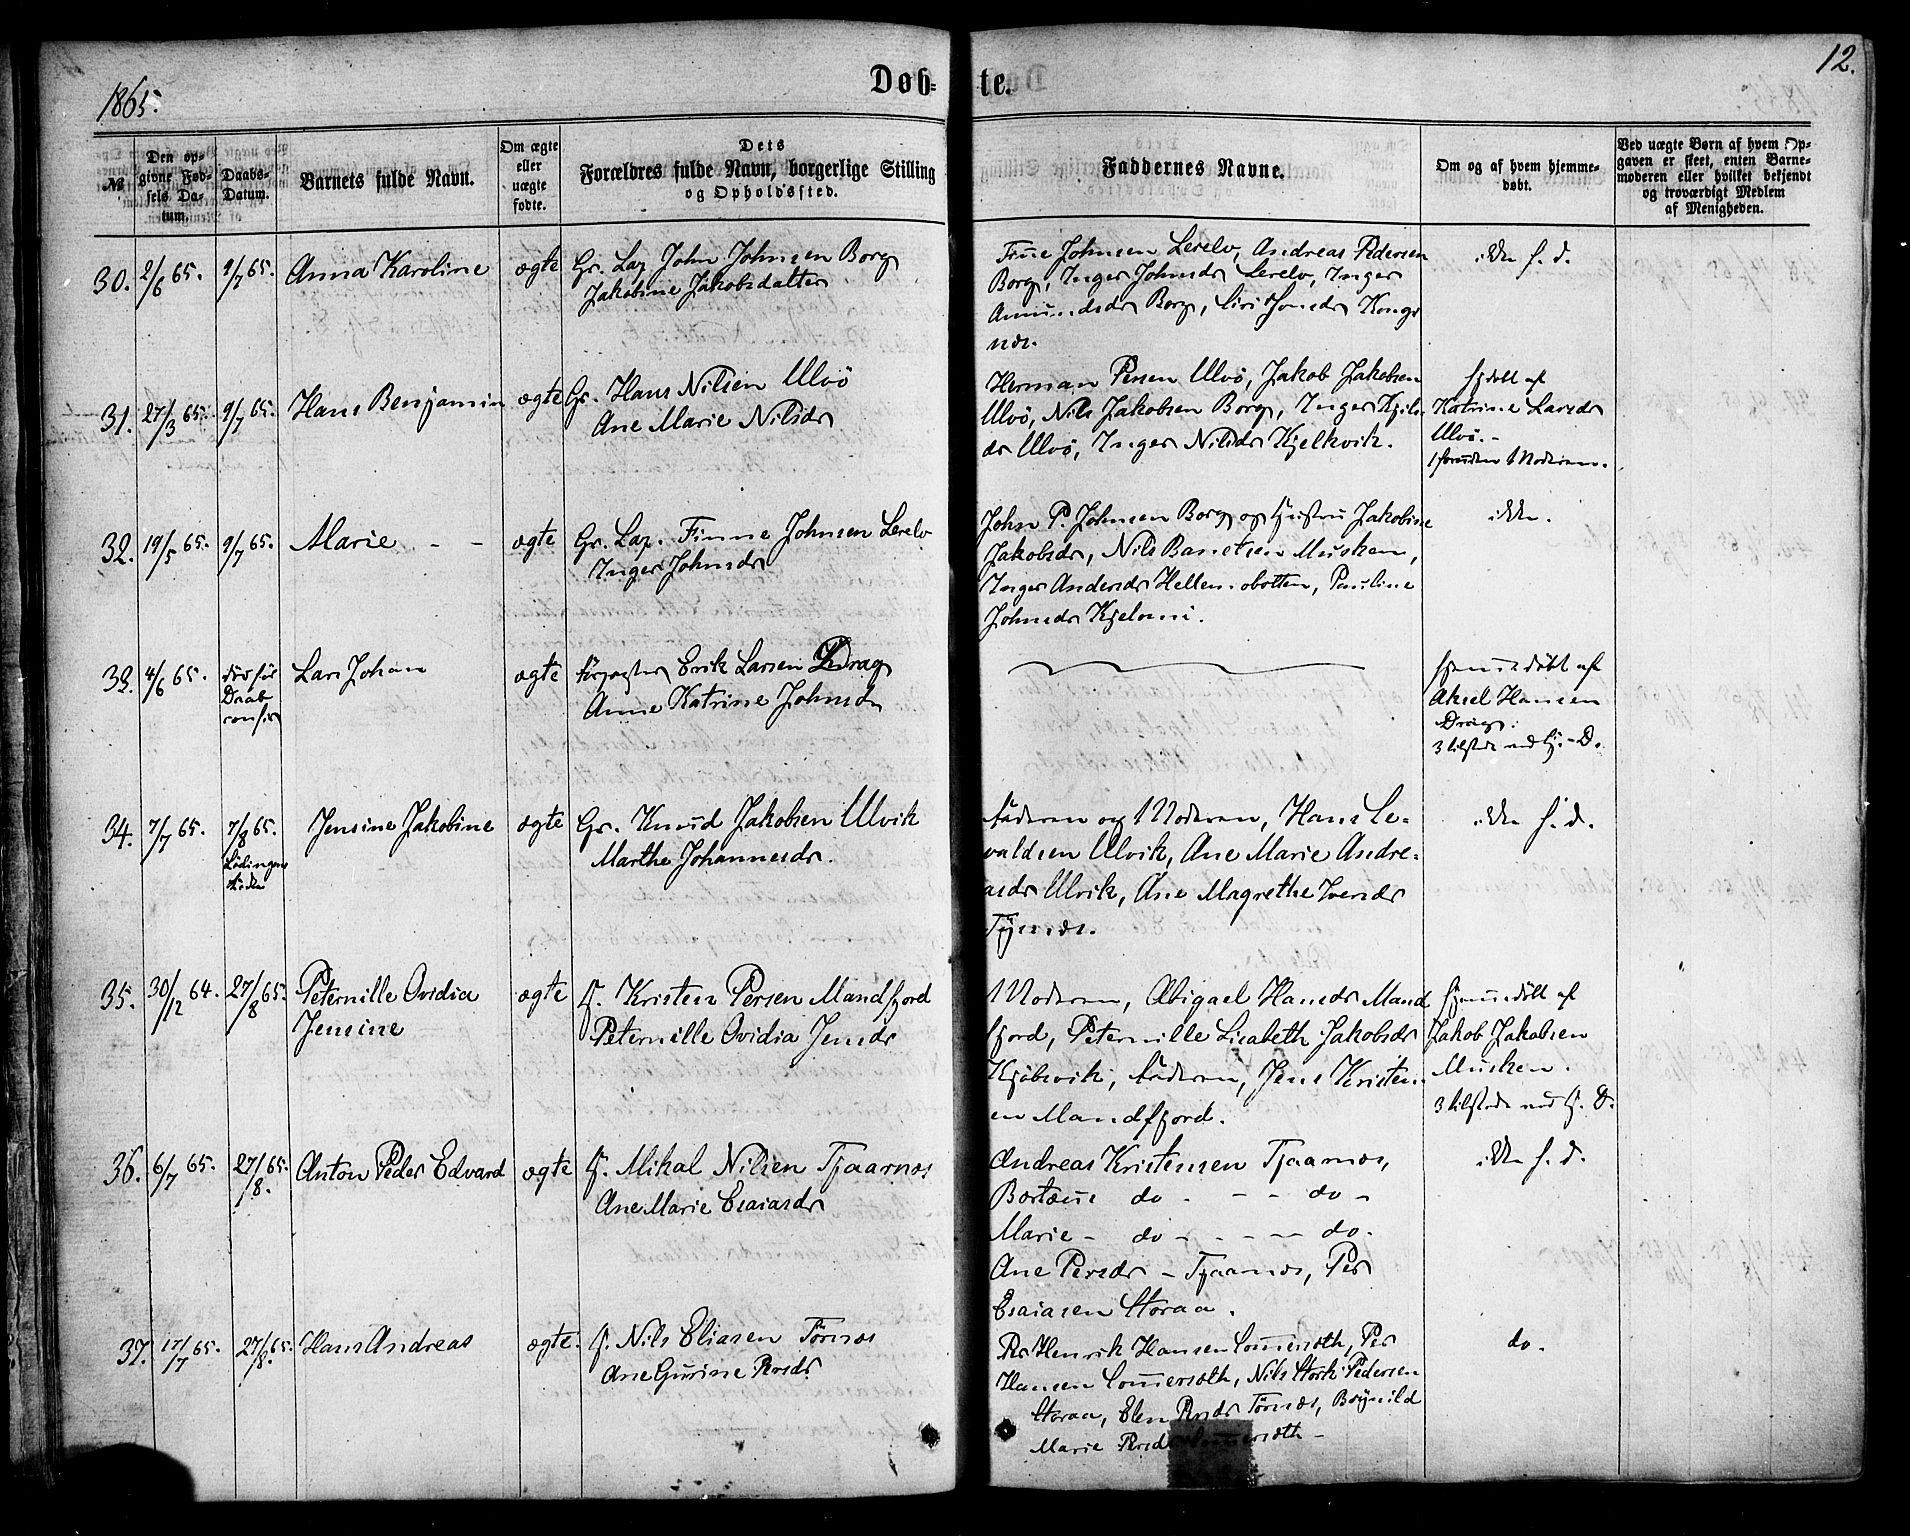 12.
1865.
Døb-
te.
№
Den opgivne Fødsels Datum.
Daabs-Datum.
Barnets fulde Navn.
Om ægte eller uægte fødte.
Dets
Forældres fulde Navn, borgerlige Stilling
og Opholdssted.
Faddernes Navne.
Om og af hvem hjemme-
døbt.
Ved uægte Børn af hvem Op-
gaven er skeet, enten Barne-
moderen eller hvilket bekjendt
og troværdigt Medlem
af Menigheden.
30. 2/6 65. 9/7 65. Anna Karoline ægte Gr. Lap John Johnsen Borg
Jakobine Jakobsdatter
Finne Johnsen Lerelv, Andreas Pedersen
Borg, Inger Johnsdr Lerelv, Inger
Amundsdr Borg, Siri Jonsdr Kongs
næs.
ikke h. d.
31. 27/3 65. 9/7 65. Hans Benjamin ægte Gr. Hans Nilsen Ulvö
Ane Marie Nilsdr
Herman Persen Ulvö, Jakob Jakobsen
Ulvö, Nils Jakobsen Borg, Inger Kjels
dr Ulvö, Inger Nilsdr Kjelkvik.
hjdøbt af
Katrine Larsdr
Ulvö. -
1 foruden Moderen.
32. 19/5 65. 9/7 65. Marie - - ægte Gr. Lap. Finne Johnsen Lerelv
Inger Johnsdr
John P. Johnsen Borg og Hustru Jakobine
Jakobsdr, Nils Barutsen Musken,
Inger Andersdr Hellemobotten, Pauline
Johnsdr
ikke.
33. 4/6 65. død før
Daab
Lars Johan ægte Erik Larsen Drag
Anne Katrine Johnsdr
hjemmedöbt af
Aksel Hansen
Drag.
3 tilstede ved hj. - D.
34. 7/7 65. 7/8 65.
Lødingen
Jensine Jakobine ægte Gr. Knud Jakobsen Ulvik
Marthe Johannesdr.
Faderen og Moderen, Hans Le-
valdsen Ulvik, Ane Marie Andre-
asdr Ulvik, Ane Magrethe Iversdr
Tysnæs.
ikke h. d.
35. 30/12 64. 27/8 65. Peternille Ovidia
Jensine
ægte f. Kristen Persen Mandfjord
Peternille Ovidia Jensdr
Moderen, Abigael Hansdr Mand
fjord, Peternille Lisabeth Jakobsdr
Kjöbsvik, Faderen, Jens Kristen-
en Mandfjord.
hjemmedöbt af
Jakob Jakobsen
Musken.
3 tilstede ved hj. D.
36. 6/7 65. 27/8 65. Anton Peder Edvard ægte f. Mikal Nilsen Tjaarnæs
Ane Marie Esaiasdr
Andreas Kristensen Tjaarnæs,
Bertæus do - - - do -
Marie - do - - - - do.
Ane Persdr - Tjaarnæs, Per
Esaiasen Storaa.
ikke h. d.
37. 17/7 65. 27/8 65. Hans Andreas ægte. f. Nils Eliasen Törnæs
Ane Gurine Persdr
Per Henrik Hansen Sommersæth, Per
Hansen Sommersæth, Nils Stork Pedersen
Storaa, Elen Persdr Törnæs, Brynild
Marie Persdr Sommersæth -
do.